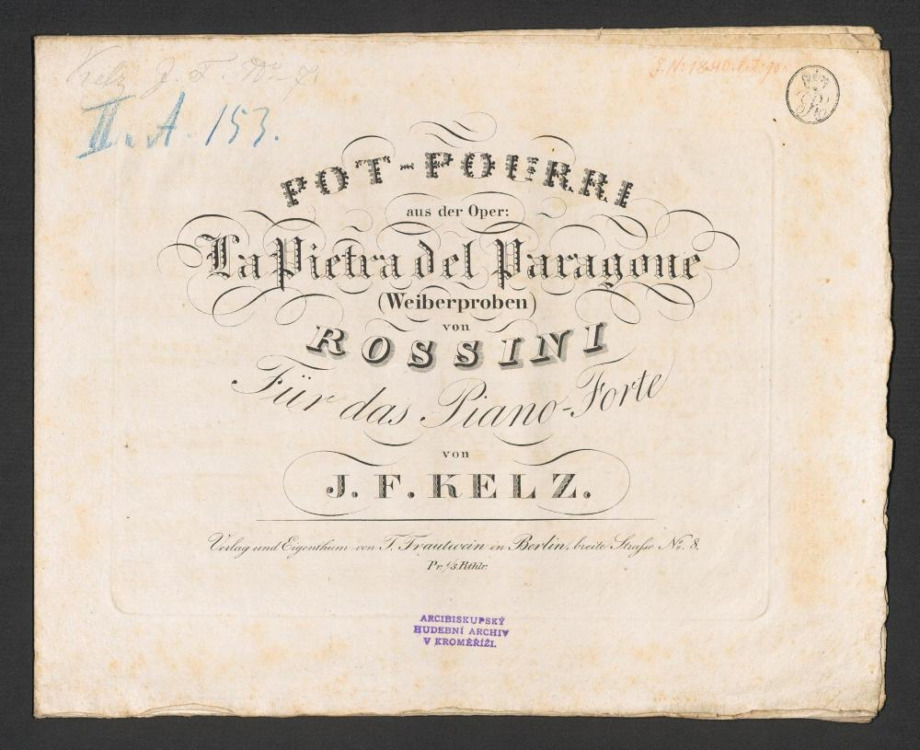 Kelz J. F.
II. A. 153.
POT-POURRI
aus der Oper:
La Pietra del Paragone
(Weiberproben)
von
ROSSINI
Für das Piano-Forte
von
J. F. KELZ.
Verlag und Eigenthum von T. Trautwein in Berlin, breite Strasse No. 8.
Pr. ⅓ Rthlr.
ARCIBISKUPSKÝ
HUDEBNÍ ARCHIV
V KROMĚŘÍŽI.